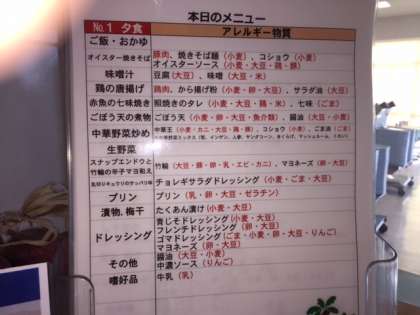 本日のメニュー
No.1 夕食 アレルギー物質
ご飯・おかゆ
オイスター焼きそば 豚肉、焼きそば麺（小麦）、コショウ（小麦）
オイスターソース（小麦・大豆・鶏・豚）
味噌汁 豆腐（大豆）、味噌（大豆・米）
鶏の唐揚げ 鶏肉、から揚げ粉（小麦・卵・大豆）、サラダ油（大豆）
赤魚の七味焼き 照焼きのタレ（小麦・大豆・鶏・米）、七味（ごま）
ごぼう天の煮物 ごぼう天（小麦・卵・大豆・魚介類）、醤油（大豆・小麦）
中華野菜炒め 中華王（小麦・カニ・大豆・鶏・豚）、コショウ（小麦）、ごま油（ごま）
生野菜
スナップエンドウと
竹輪の辛子マヨ和え 竹輪（大豆・豚・卵・乳・エビ・カニ）、マヨネーズ（卵・大豆）
乱切りキュウリのサッパリ和 チョレギサラダドレッシング（小麦・ごま・大豆）
プリン プリン（乳・卵・大豆・ゼラチン）
漬物、梅干 たくあん漬け（小麦・大豆）
ドレッシング 青じそドレッシング（小麦・大豆）
フレンチドレッシング（卵・小麦）
ゴマドレッシング（ごま・小麦・卵・大豆・りんご）
マヨネーズ（卵・大豆）
その他 醤油（大豆・小麦）
中濃ソース（りんご）
嗜好品 牛乳（乳）